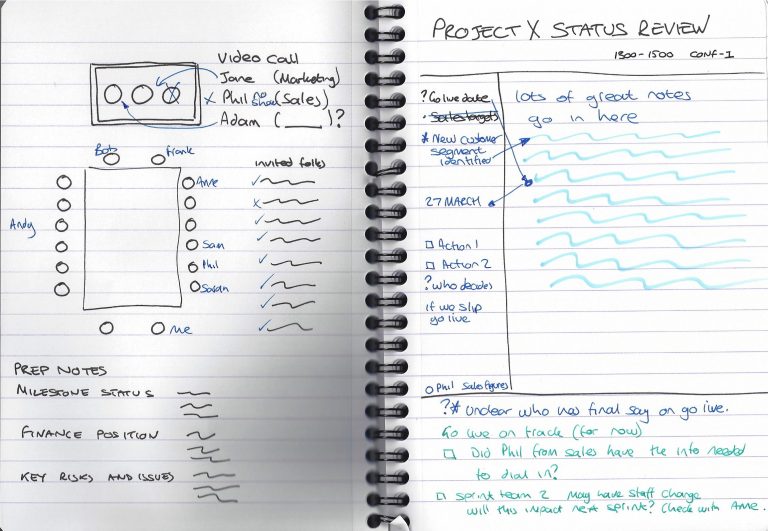 Video call
Jane (Marketing)
x Phil no show (Sales)
Adam (____)?
Bob
Frank
invited folks
Anne
Andy
Sam
Phil
Susan
me
PREP NOTES
MILESTONE STATUS
FINANCE POSITION
KEY RISKS AND ISSUES
PROJECT X STATUS REVIEW
1300-1500 CONF-1
? Go live date
· Sales targets
* New customer
segment
identified
27 MARCH
□ Action 1
□ Action 2
? who decides
if we slip
go live
○ Phil sales figures
lots of great notes
go in here
?* unclear who has final say on go live.
Go live on track (for now)
□ Did Phil from sales have the info needed
to dial in?
□ Sprint team 2 may have staff change
will this impact next sprint? Check with Anne.